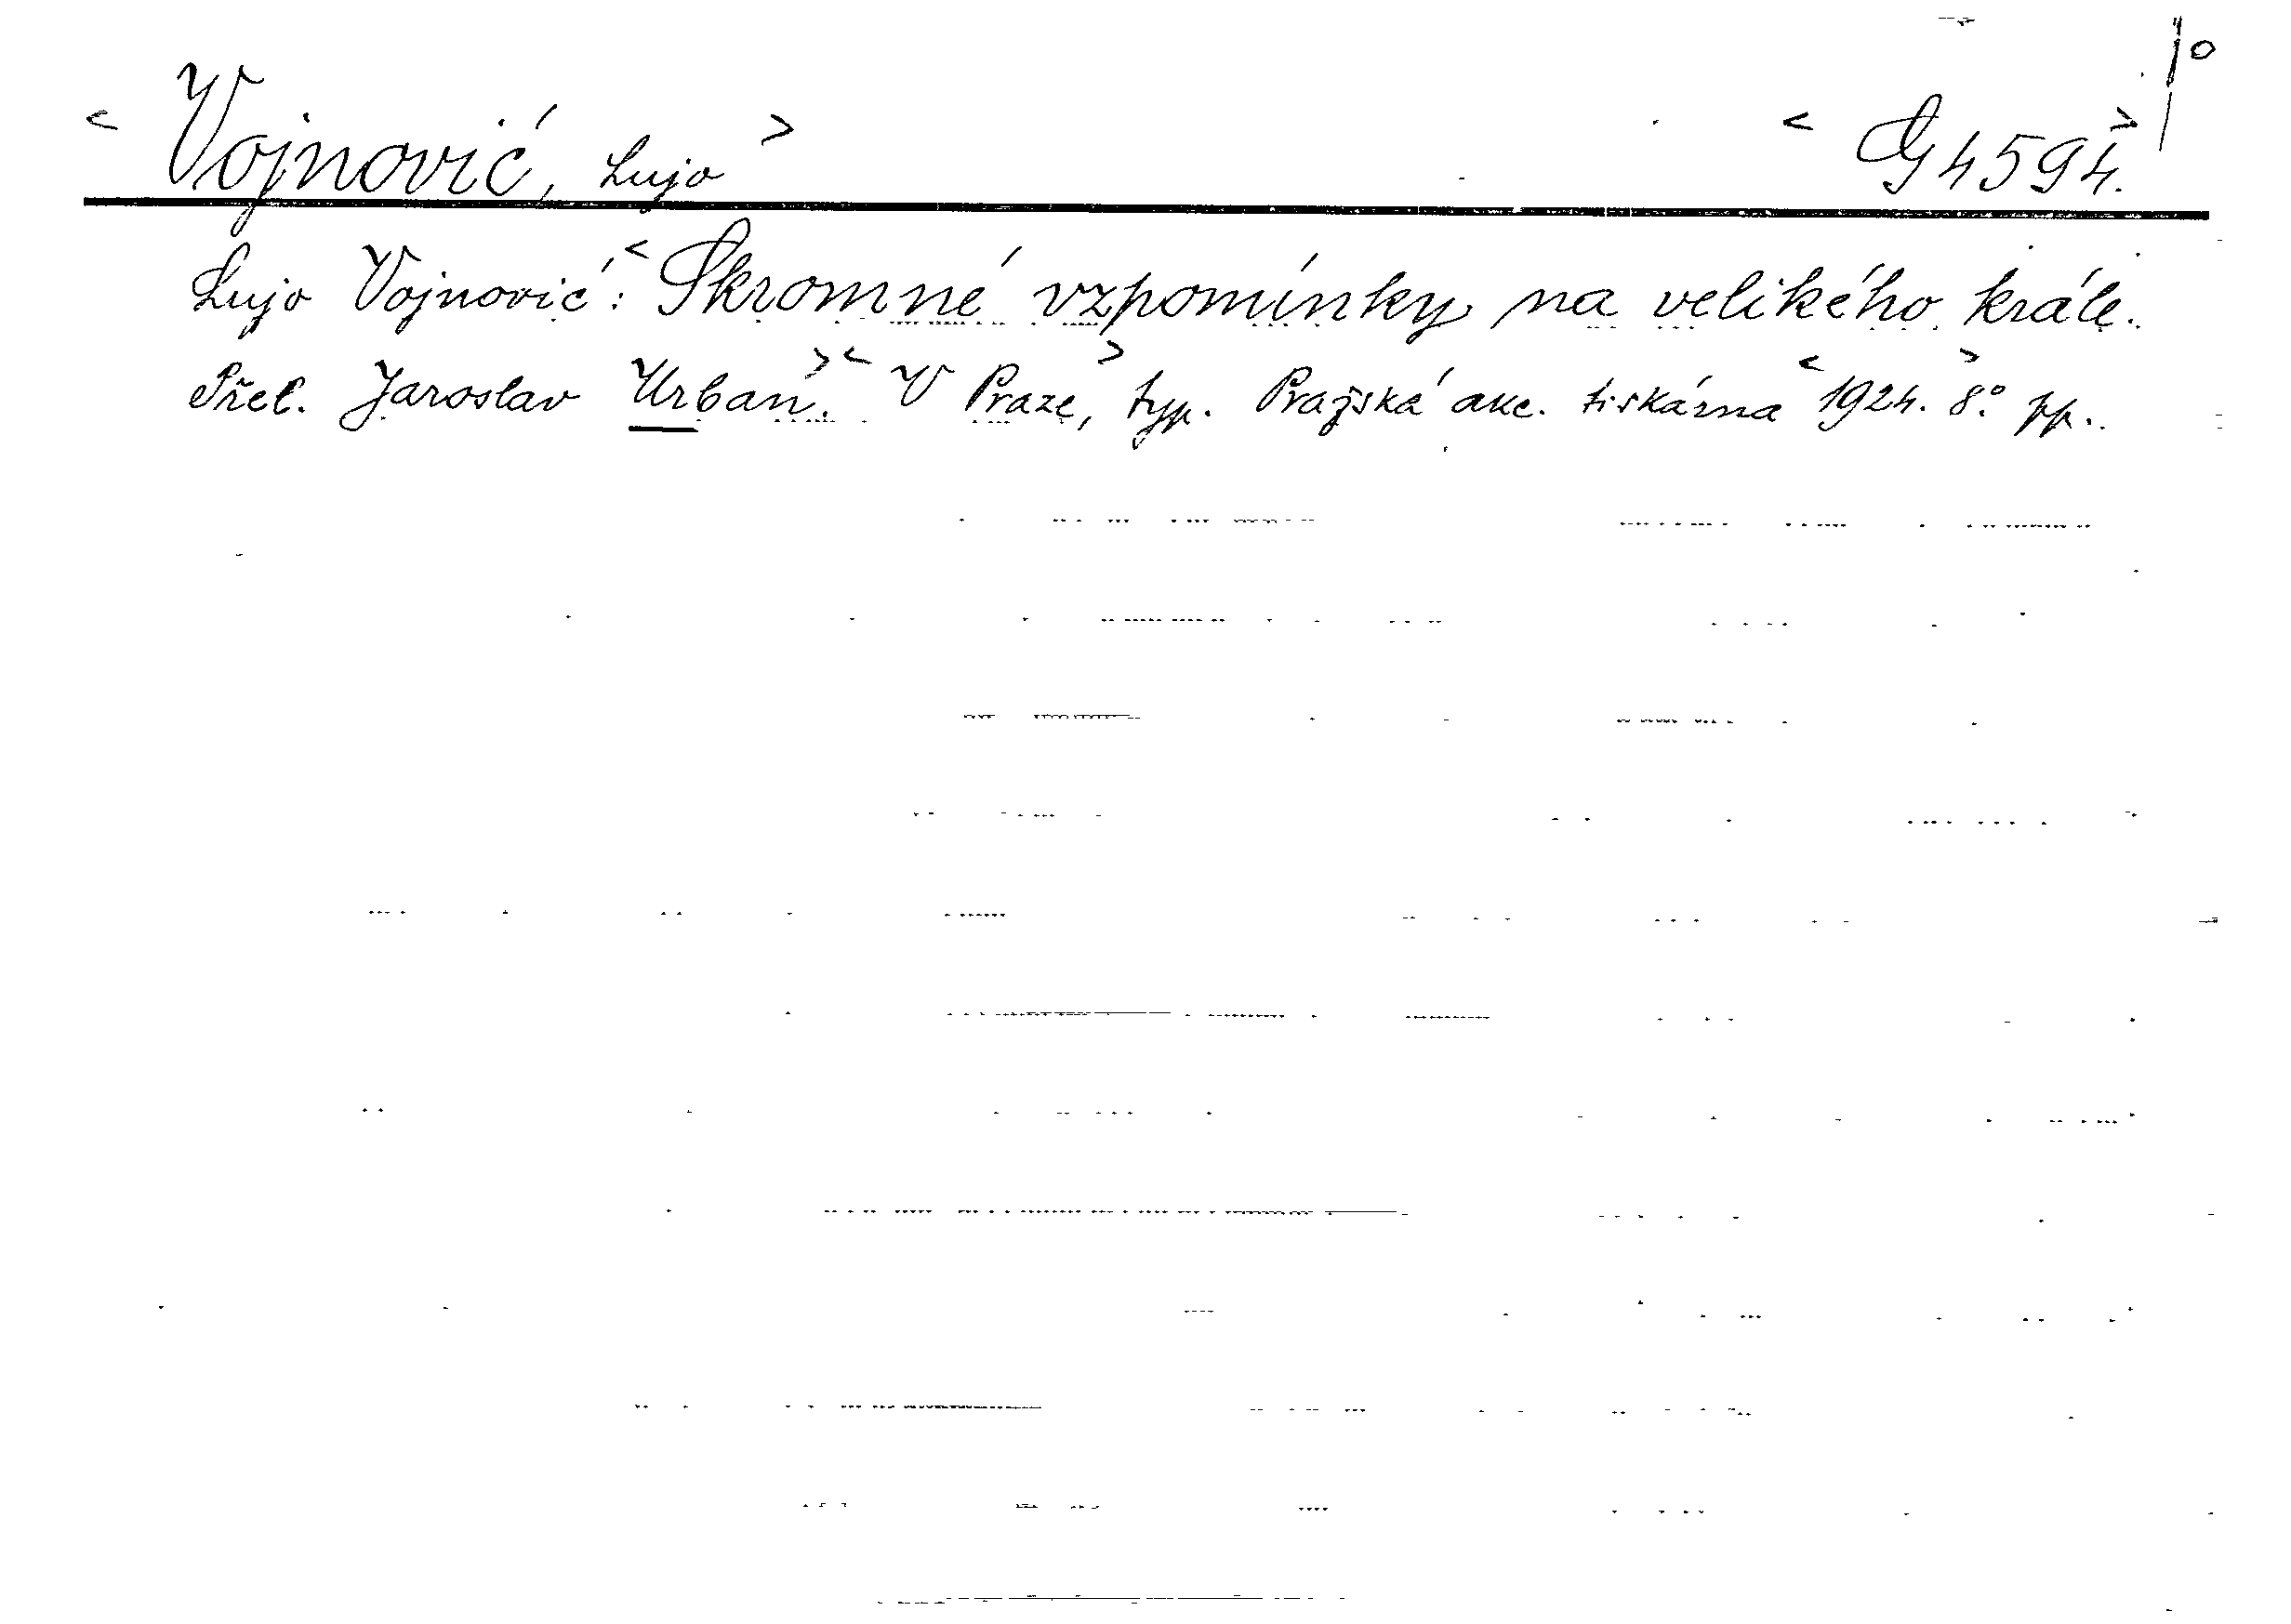 < Vojnović, Lujo > < G 4594. >
Lujo Vojnović: < Skromné vzpomínky na velikého krále.
Přel. Jaroslav Urban. > < V Praze, > typ. Pražská akc. tiskárna < 1924. > 8.° pp..